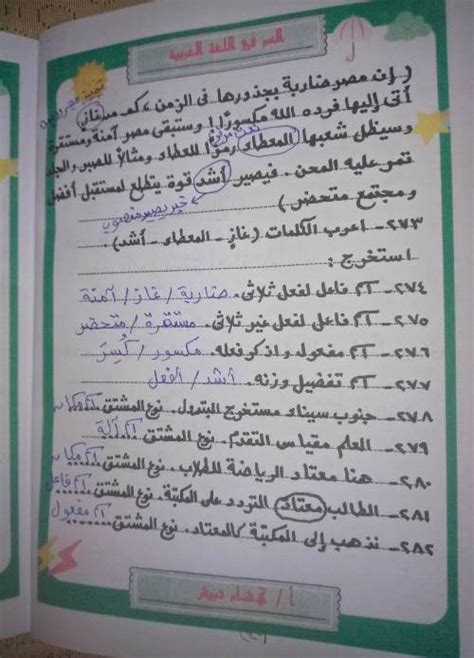 السر في اللغة العربية
تمييز مجرور بمن
( إن مصر ضاربة بجذورها في الزمن ، كم من غازٍ
أتى إليها فرده الله مكسورًا وستبقى مصر آمنة ومستقرة
نعت مرفوع
وسيظل شعبها المعطاء رمزًا للعطاء ومثالًا للصبر والجلد
تمر عليه المحن . فيصير أشد قوة يتطلع لمستقبل أفضل
ومجتمع متحضر ) خبر يصير منصوب
٢٧٣- اعرب الكلمات ( غاز - المعطاء - أشد ) .
استخرج :
٢٧٤- اسم فاعل لفعل ثلاثي . ضاربة / غاز / آمنة
٢٧٥- اسم فاعل لفعل غير ثلاثي . مستقرة / متحضر
٢٧٦- اسم مفعول واذكر فعله . مكسور / كُسِرَ
٢٧٧- اسم تفضيل وزنه . أشد / أفعل
٢٧٨- جنوب سيناء مستخرج البترول . نوع المشتق اسم مكان
٢٧٩- العلم مقياس التقدم . نوع المشتق اسم آلة
٢٨٠- هنا معتاد الرياضة للطلاب . نوع المشتق اسم مكان
٢٨١- الطالب معتاد التردد على المكتبة . نوع المشتق اسم فاعل
٢٨٢- نذهب إلى المكتبة كالمعتاد . نوع المشتق اسم مفعول
أ /